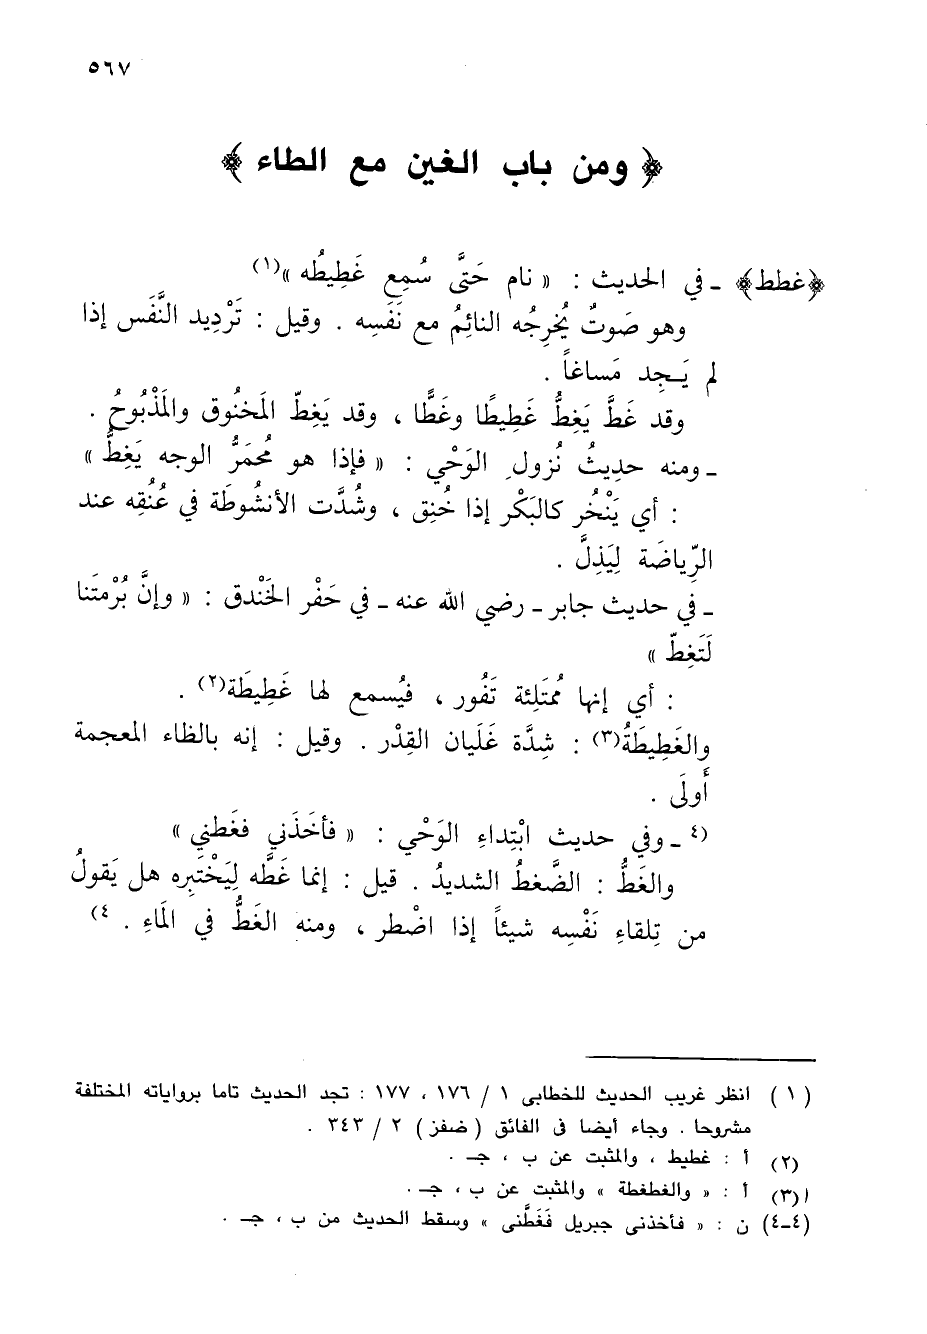 ٥٦٧
﴿ ومن باب الغين مع الطاء ﴾
﴿غطط﴾ ـ في الحديث : « نام حَتَّى سُمِع غَطِيطُه »(١)
وهو صَوتٌ يُخرِجُه النائِمُ مع نَفَسِه . وقيل : تَرْدِيد النَّفَس إذا
لم يَـجِد مَساغاً .
وقد غَطَّ يَغِطُّ غَطِيطًا وغَطًّا ، وقد يَغِطّ المَخنُوق والمَذْبُوحُ .
ـ ومنه حديثُ نُزولِ الوَحْي : « فإذا هو مُحمَرُّ الوجه يَغِطُّ »
: أي يَنْخُر كالبَكْر إذا خُنِق ، وشُدَّت الأنشُوطَة في عُنُقِه عند
الرِّياضَة لِيَذِلَّ .
ـ في حديث جابر ـ رضي الله عنه ـ في حَفْر الخَنْدق : « وإنَّ بُرْمتَنا
لَتَغِطّ »
: أي إنها مُمتَلِئة تَفُور ، فيُسمع لها غَطِيطَة(٢) .
والغَطِيطَةُ(٣) : شِدَّة غَلَيان القِدْر . وقيل : إنه بالظاء المعجمة
أَولَى .
(٤ ـ وفي حديث ابْتِداءِ الوَحْي : « فأخَذَني فغَطني »
والغَطُّ : الضَّغطُ الشديدُ . قيل : إنما غَطَّه لِيَخْتَبِره هل يَقولُ
من تِلقاءِ نَفْسِه شيئاً إذا اضْطر ، ومنه الغَطُّ في المَاءِ . ٤)
( ١ ) انظر غريب الحديث للخطابى ١ / ١٧٦ ، ١٧٧ : تجد الحديث تاما برواياته المختلفة
مشروحا . وجاء أيضا فى الفائق ( ضفز ) ٢ / ٣٤٣ .
(٢) أ : غطيط ، والمثبت عن ب ، جـ .
(٣) أ : « والغطغطة » والمثبت عن ب ، جـ .
(٤ـ٤) ن : « فأخذنى جبريل فَغَطَّنى » وسقط الحديث من ب ، جـ .